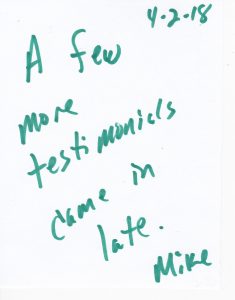 4-2-18
A few
more
testimonials
came in
late.
Mike